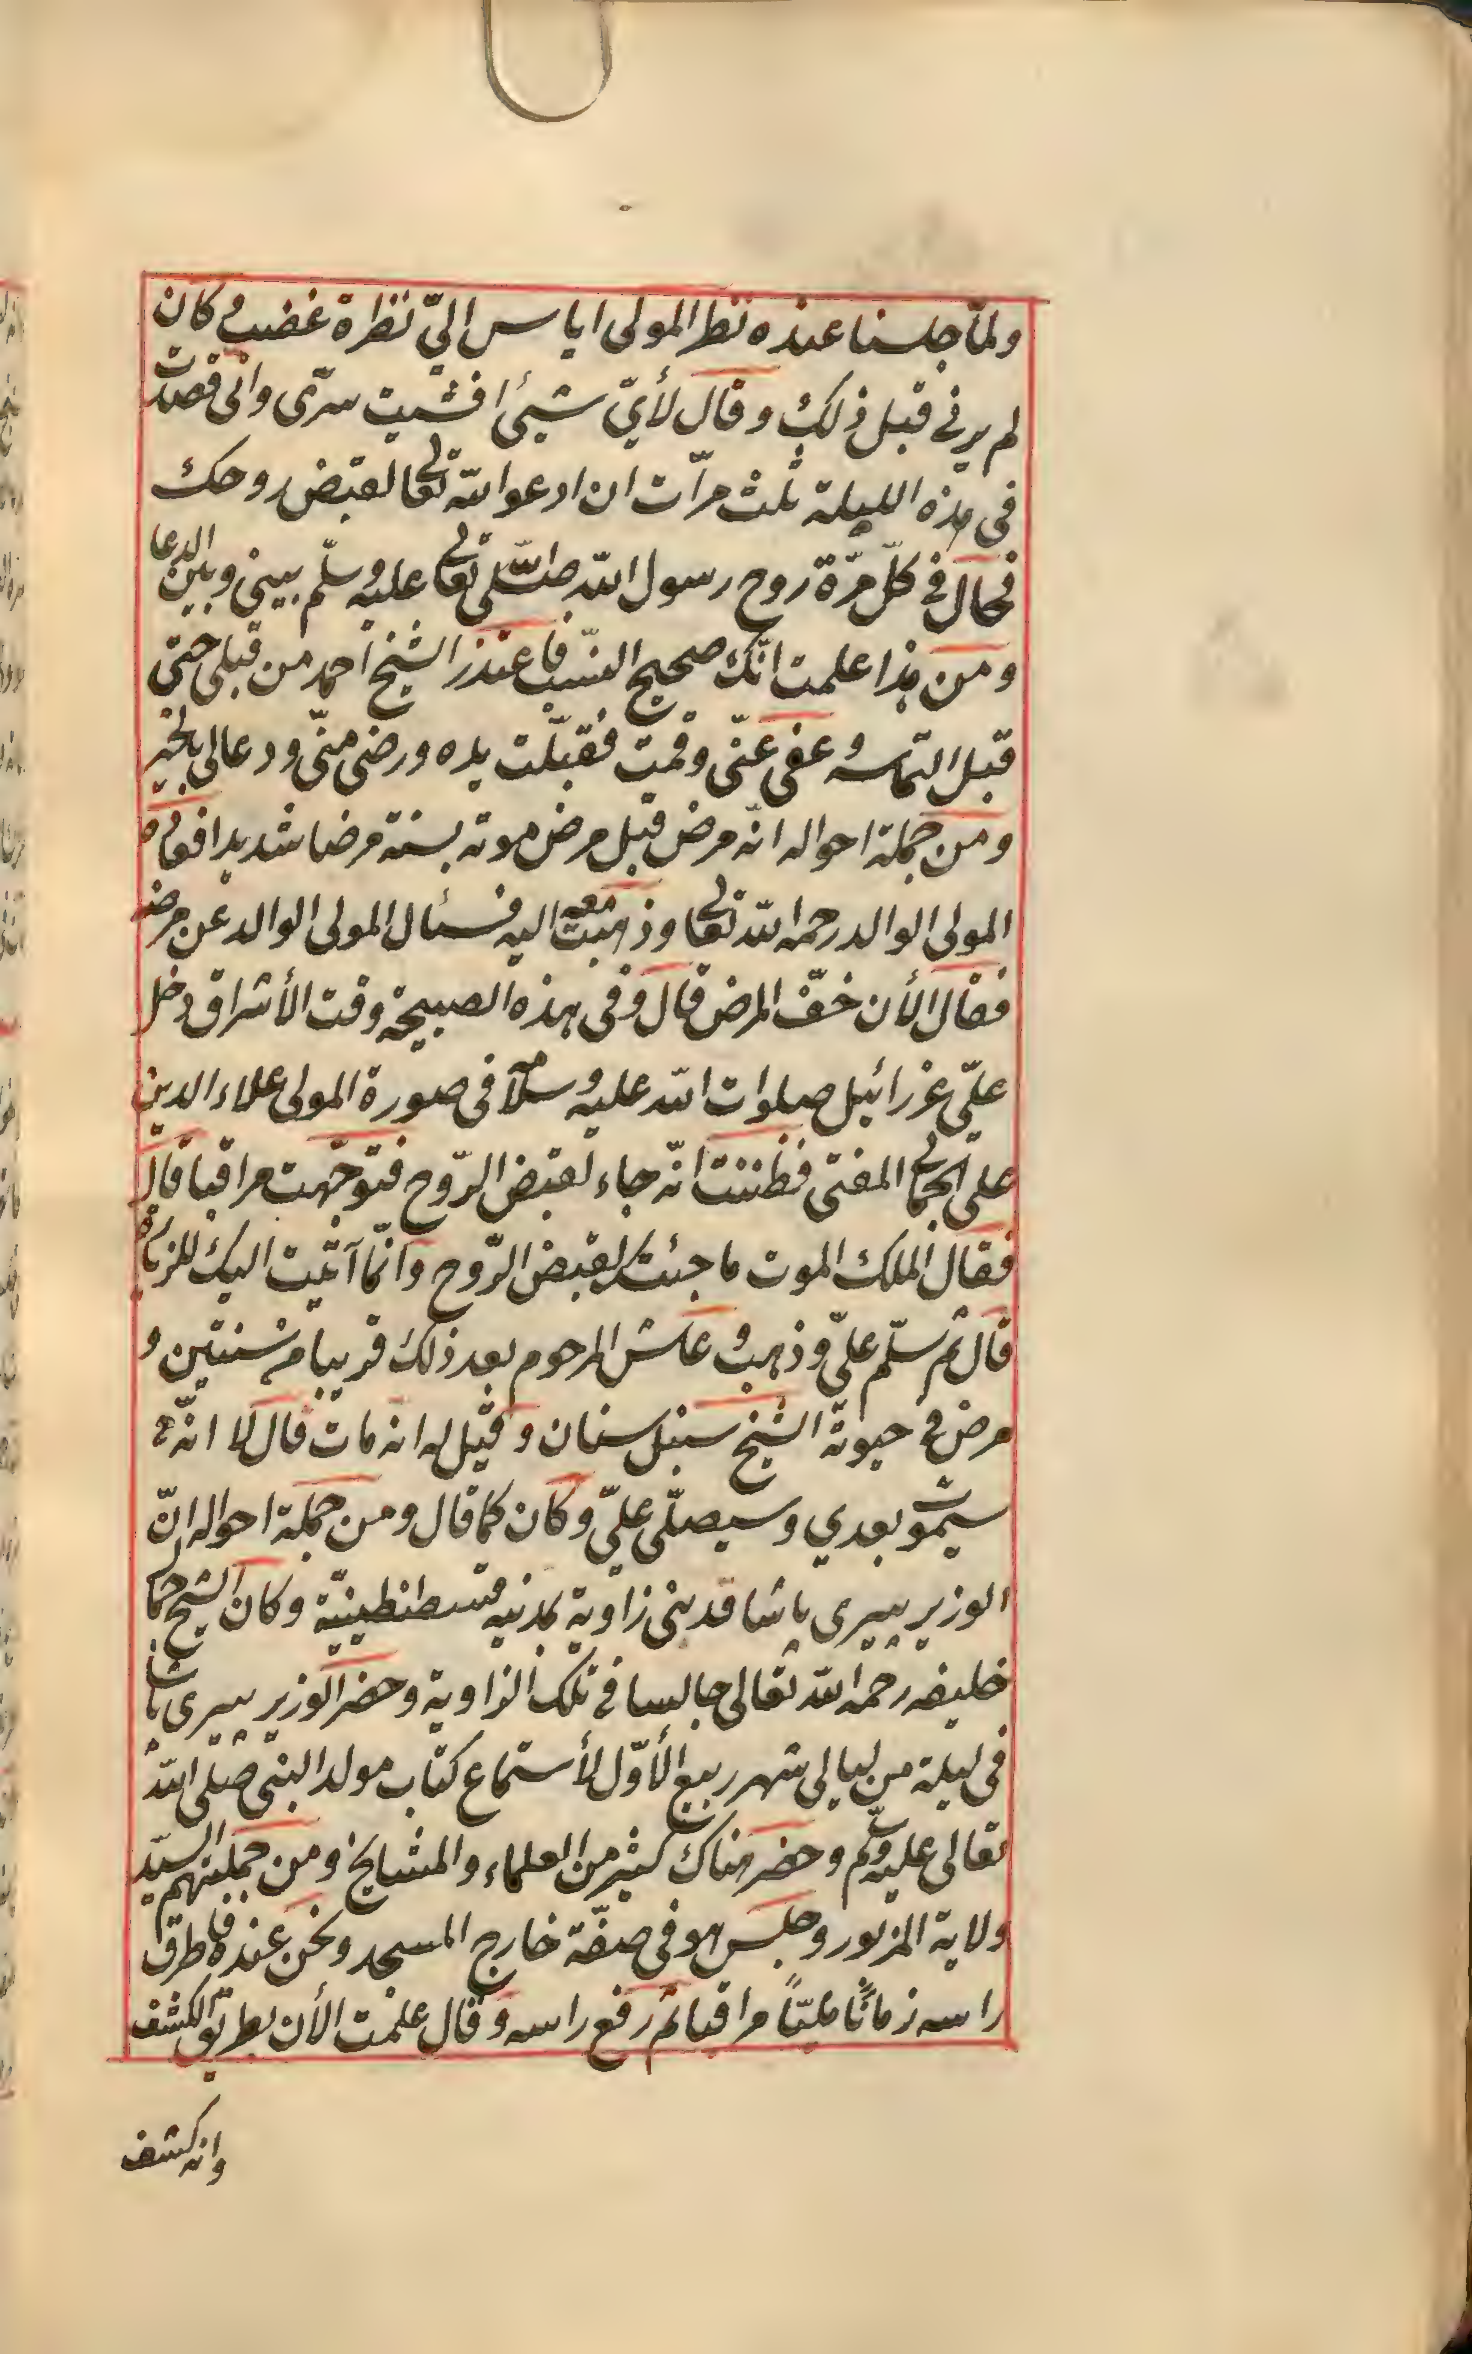 ولمّا جلسنا عنده نظر المولى اياس اليّ نظرة غضب وكان
لم يرنى قبل ذلك وقال لأيّ شيئ افشيت سرّى وانى قصدت
فى هذه الليلة ثلث مرّات ان ادعو الله تعالى لقبض روحك
فحال فى كلّ مرّة روح رسول الله صلّى الله تعالى عليه وسلّم بينى وبين الدعا
ومن هذا علمت انّك صحيح النسب فاعتذر الشيخ احمد من قبلى حتى
قبل التماسه وعفى عنّى وقمت فقبّلت يده ورضى منّى ودعا لى بالخير
ومن جملة احواله انّه مرض قبل مرض موته بسنة مرضا شديدا فعاده
المولى الوالد رحمه الله تعالى وذهبت معه اليه فسئال المولى الوالد عن مرضه
فقال الأن خفّ المرض قال وفى هذه الصبيحة وقت الأشراق دخل
علىّ عزرائيل صلوات الله عليه وسلامه فى صورة المولى علاء الدين
على الجمالى المفتى فظننت انّه جاء لقبض الرّوح فتوجّهت مراقبا قال
فقال الملك الموت ما جئت لقبض الرّوح وانّما آتيت اليك للزيارة
قال ثم سلّم علىّ وذهب وعاش المرحوم بعد ذلك قريبا من سنتين و
مرض فى حيوة الشيخ سنبل سنان وقيل له انه مات قال لا انّه
سيموت بعدي وسيصلّى علىّ وكان كما قال ومن جملة احواله انّ
الوزير بيرى پاشا قد بنى زاوية بمدنيه قسطنطينيّة وكان الشيخ جمال
خليفه رحمه الله تعالى جالسا فى تلك الزاوية وحضر الوزير بيرى پاشا
فى ليلة من ليالى شهر ربيع الأوّل لأستماع كتاب مولد النبى صلى الله
تعالى عليه وسلم وحضر هناك كثير من العلماء والمشايخ ومن جملتهم السيّد
ولاية المزبور وجلس هو فى صفّة خارج المسجد ونحن عنده فاطرق
راسه زمانًا مليّاً مراقبا ثم رفع راسه وقال علمت الأن بطريق الكشف
وانه كشف